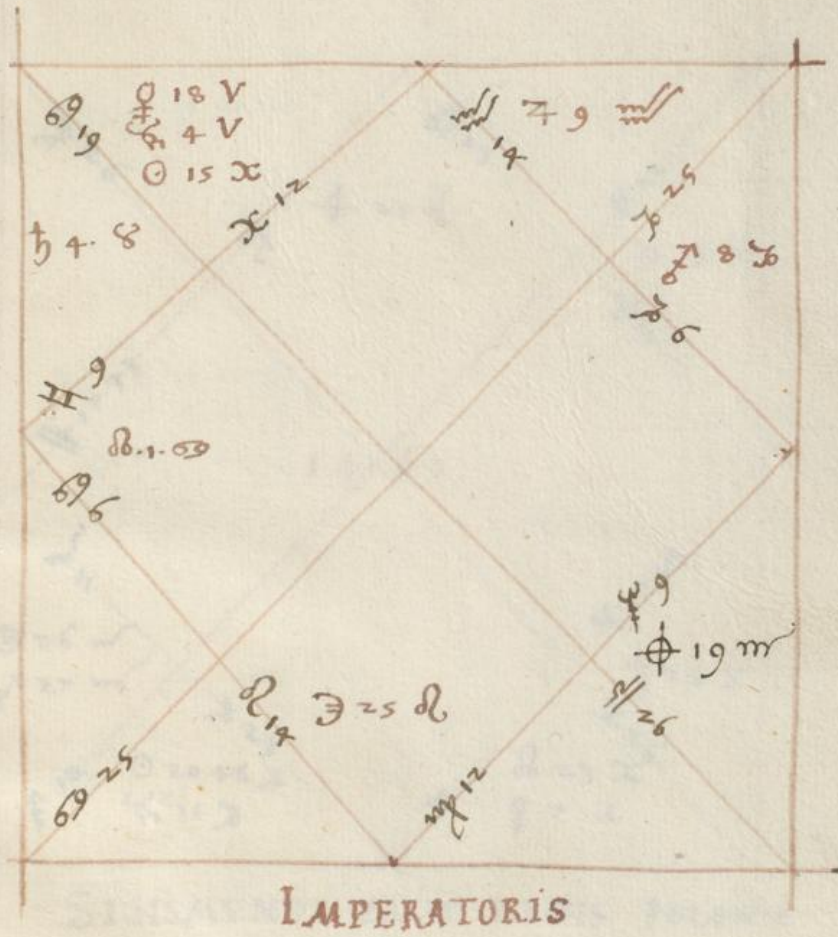 ♋ 19
♀ 18 ♈
☿ 4 ♈
☉ 15 ♓
♄ 4. ♉
♓ 12
♒ 14
♃ 9 ♒
♑ 25
♂ 8 ♑
♑ 6
♊ 9
☊. 1. ♋
♋ 6
♋ 25
♌ 14
☽ 25 ♌
♍ 12
♐ 9
⊕ 19 ♏
♎ 26
IMPERATORIS